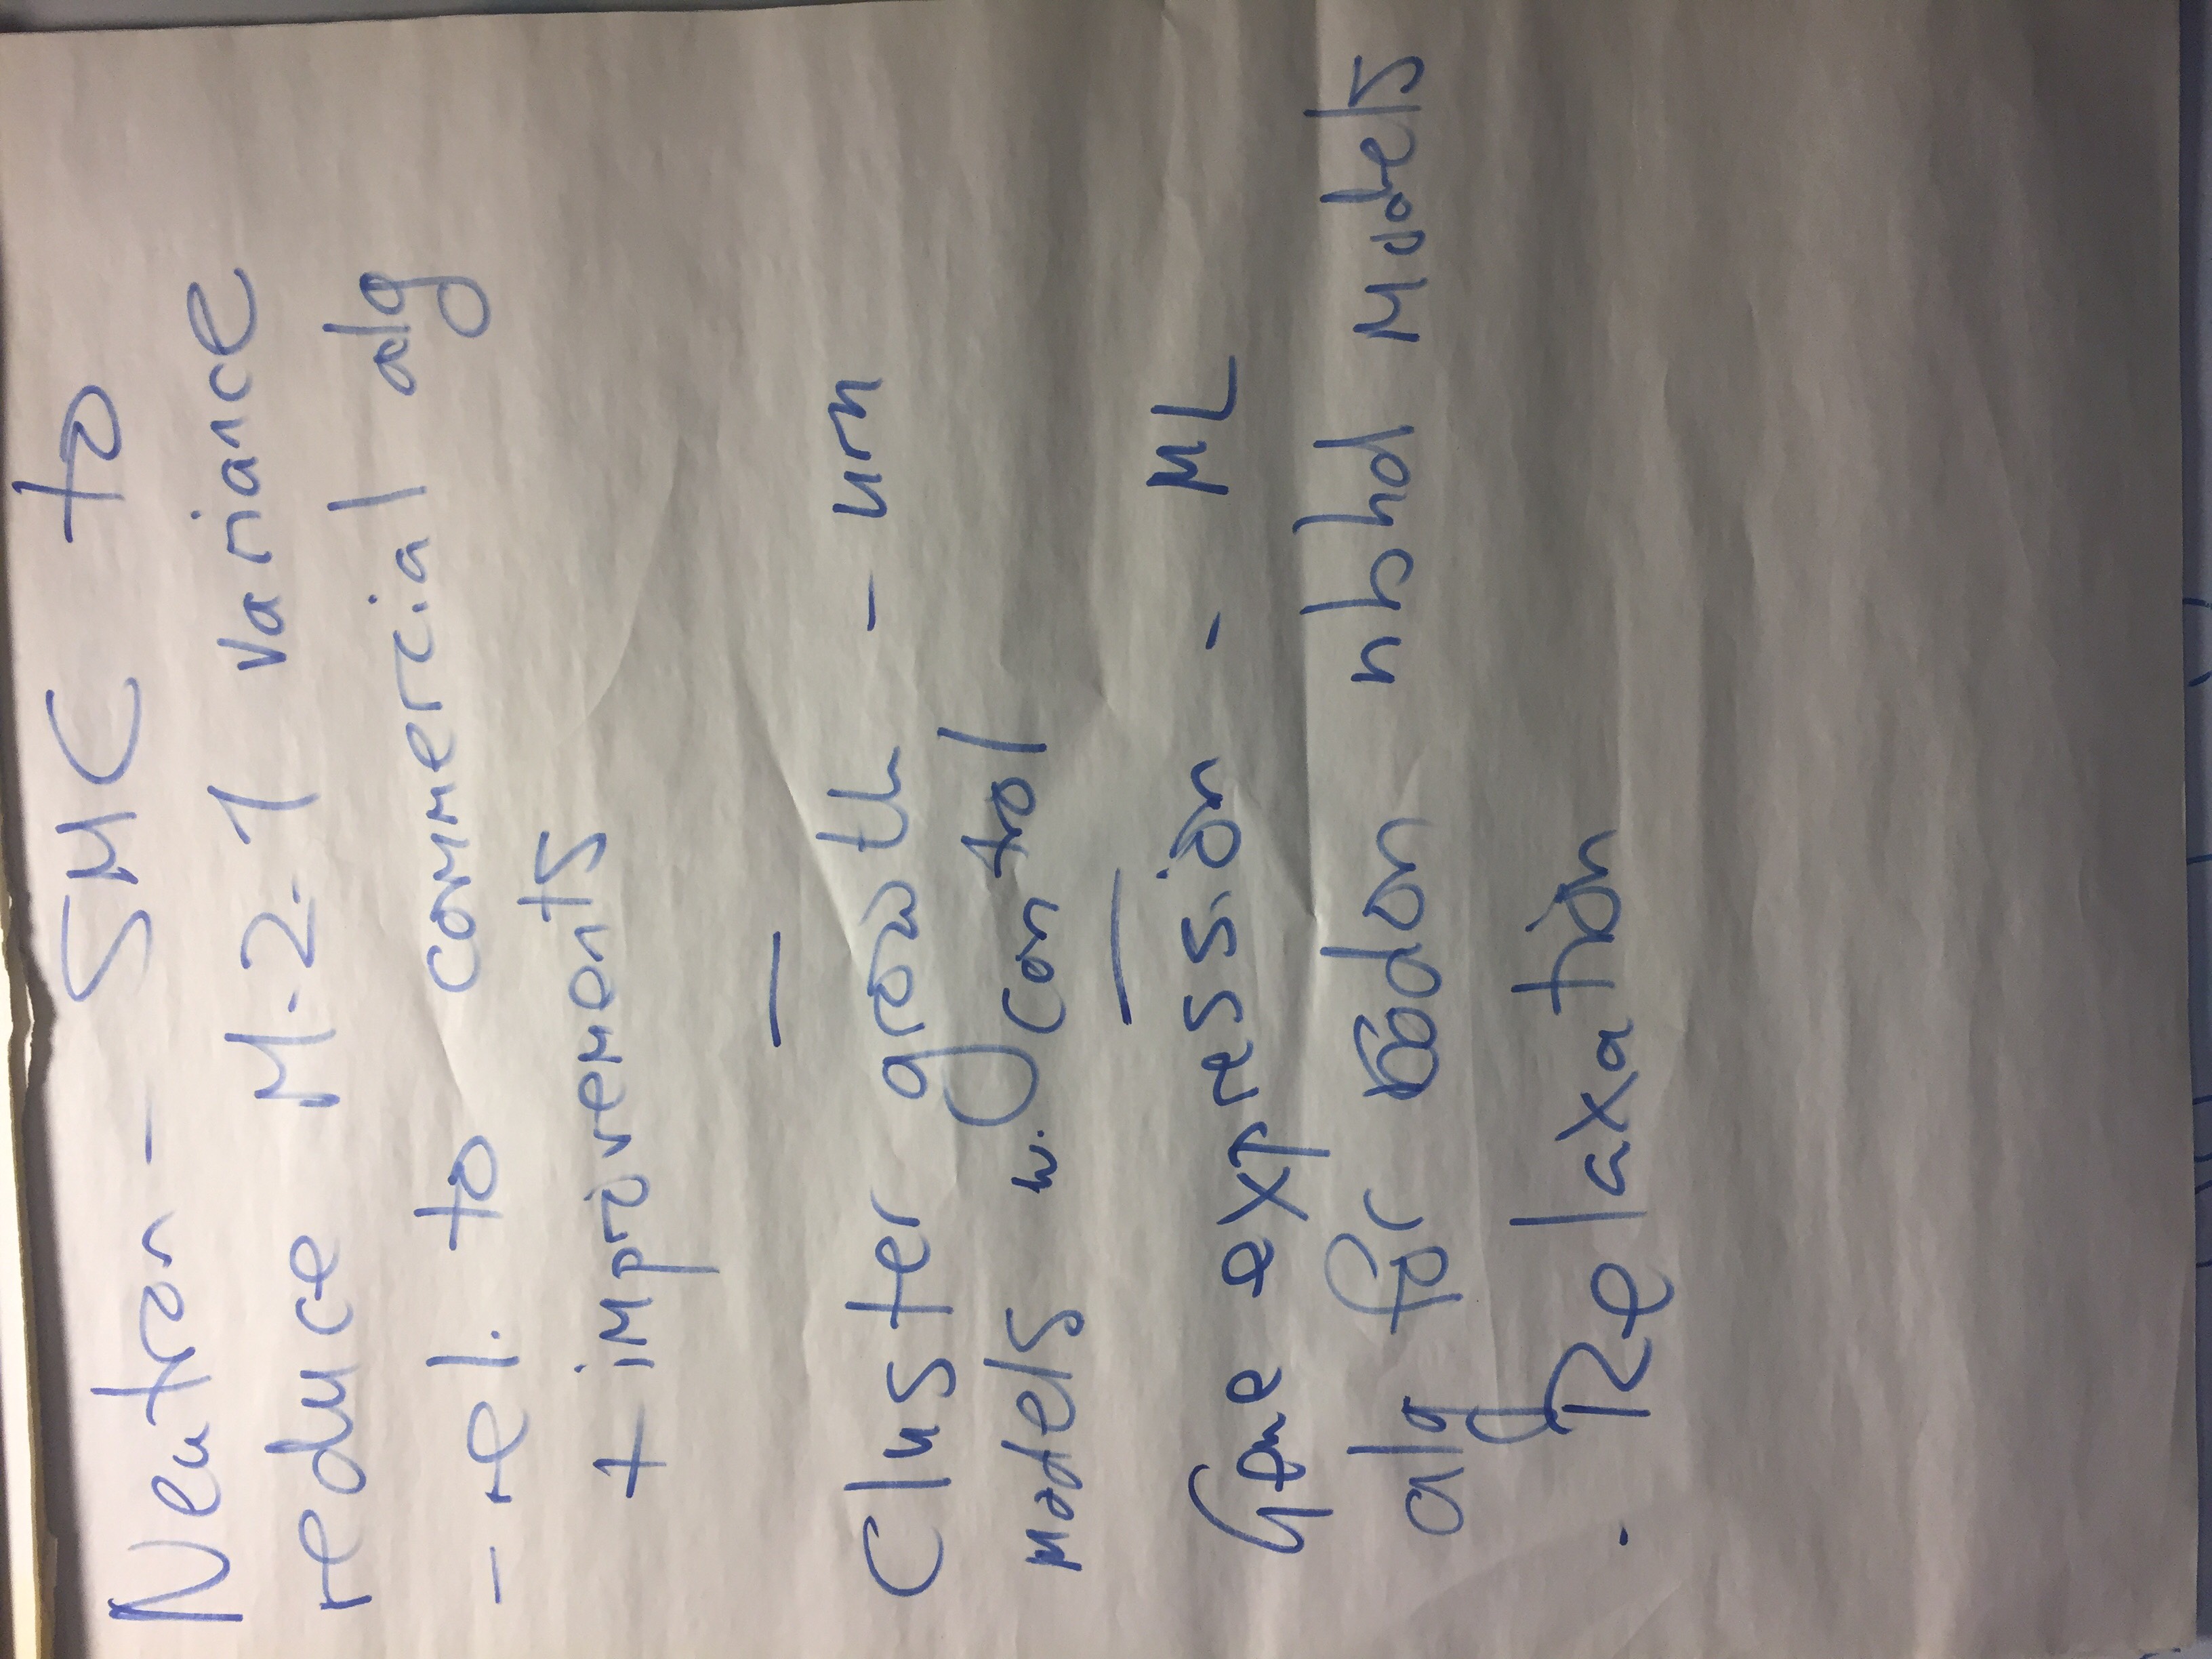 Neutron - SMC to
reduce M-2-1 variance
- rel. to commercial alg
+ improvements
—
Cluster growth - urn
models w. control
—
Gene expression - ML
alg for codon nbhd models
. Relaxation